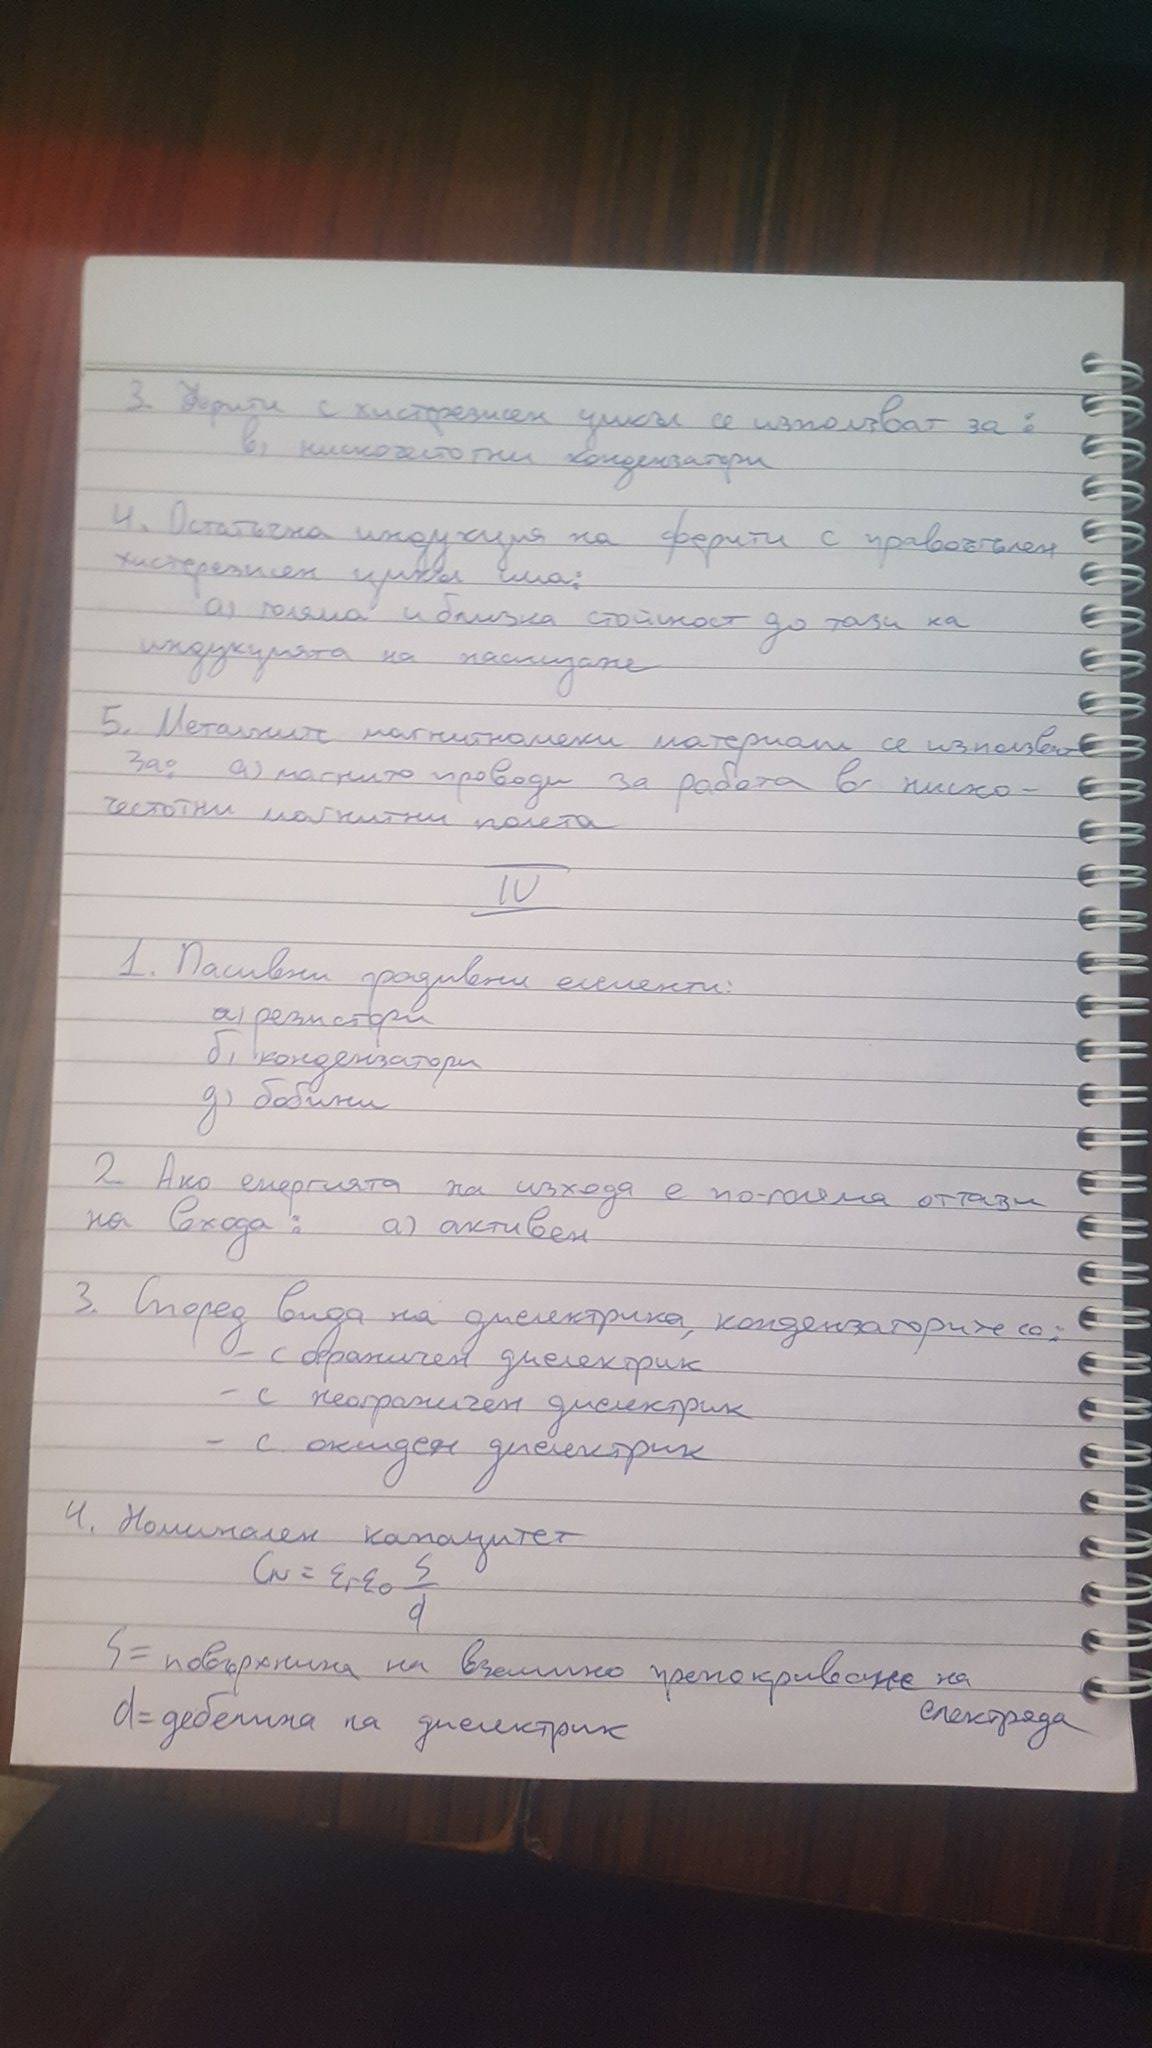 3. Ферити с хистерезисен цикъл се използват за:
в) нискочестотни кондензатори
4. Остатъчна индукция на ферити с правоъгълен
хистерезисен цикъл има:
а) голяма и близка стойност до тази на
индукцията на насищане
5. Металните магнитномеки материали се използват
за: а) магнитопроводи за работа в ниско-
честотни магнитни полета
IV
1. Пасивни градивни елементи:
а) резистори
б) кондензатори
д) бобини
2 Ако енергията на изхода е по-голяма от тази
на входа: а) активен
3. Според вида на диелектрика, кондензаторите са:
- с ограничен диелектрик
- с неограничен диелектрик
- с оксиден диелектрик
4. Номинален капацитет
CN = εr ε0 S/d
S = повърхнина на взаимно препокриване на
електрода
d = дебелина на диелектрик